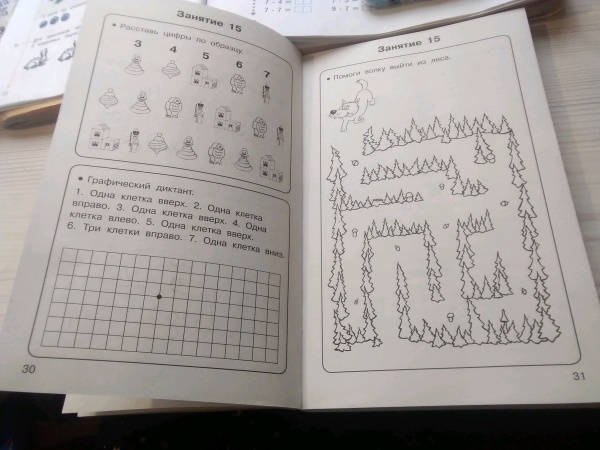 Занятие 15
• Расставь цифры по образцу.
3 4 5 6 7
• Графический диктант.
1. Одна клетка вверх. 2. Одна клетка
вправо. 3. Одна клетка вверх. 4. Одна
клетка влево. 5. Одна клетка вверх.
6. Три клетки вправо. 7. Одна клетка вниз.
30
Занятие 15
• Помоги волку выйти из леса.
31